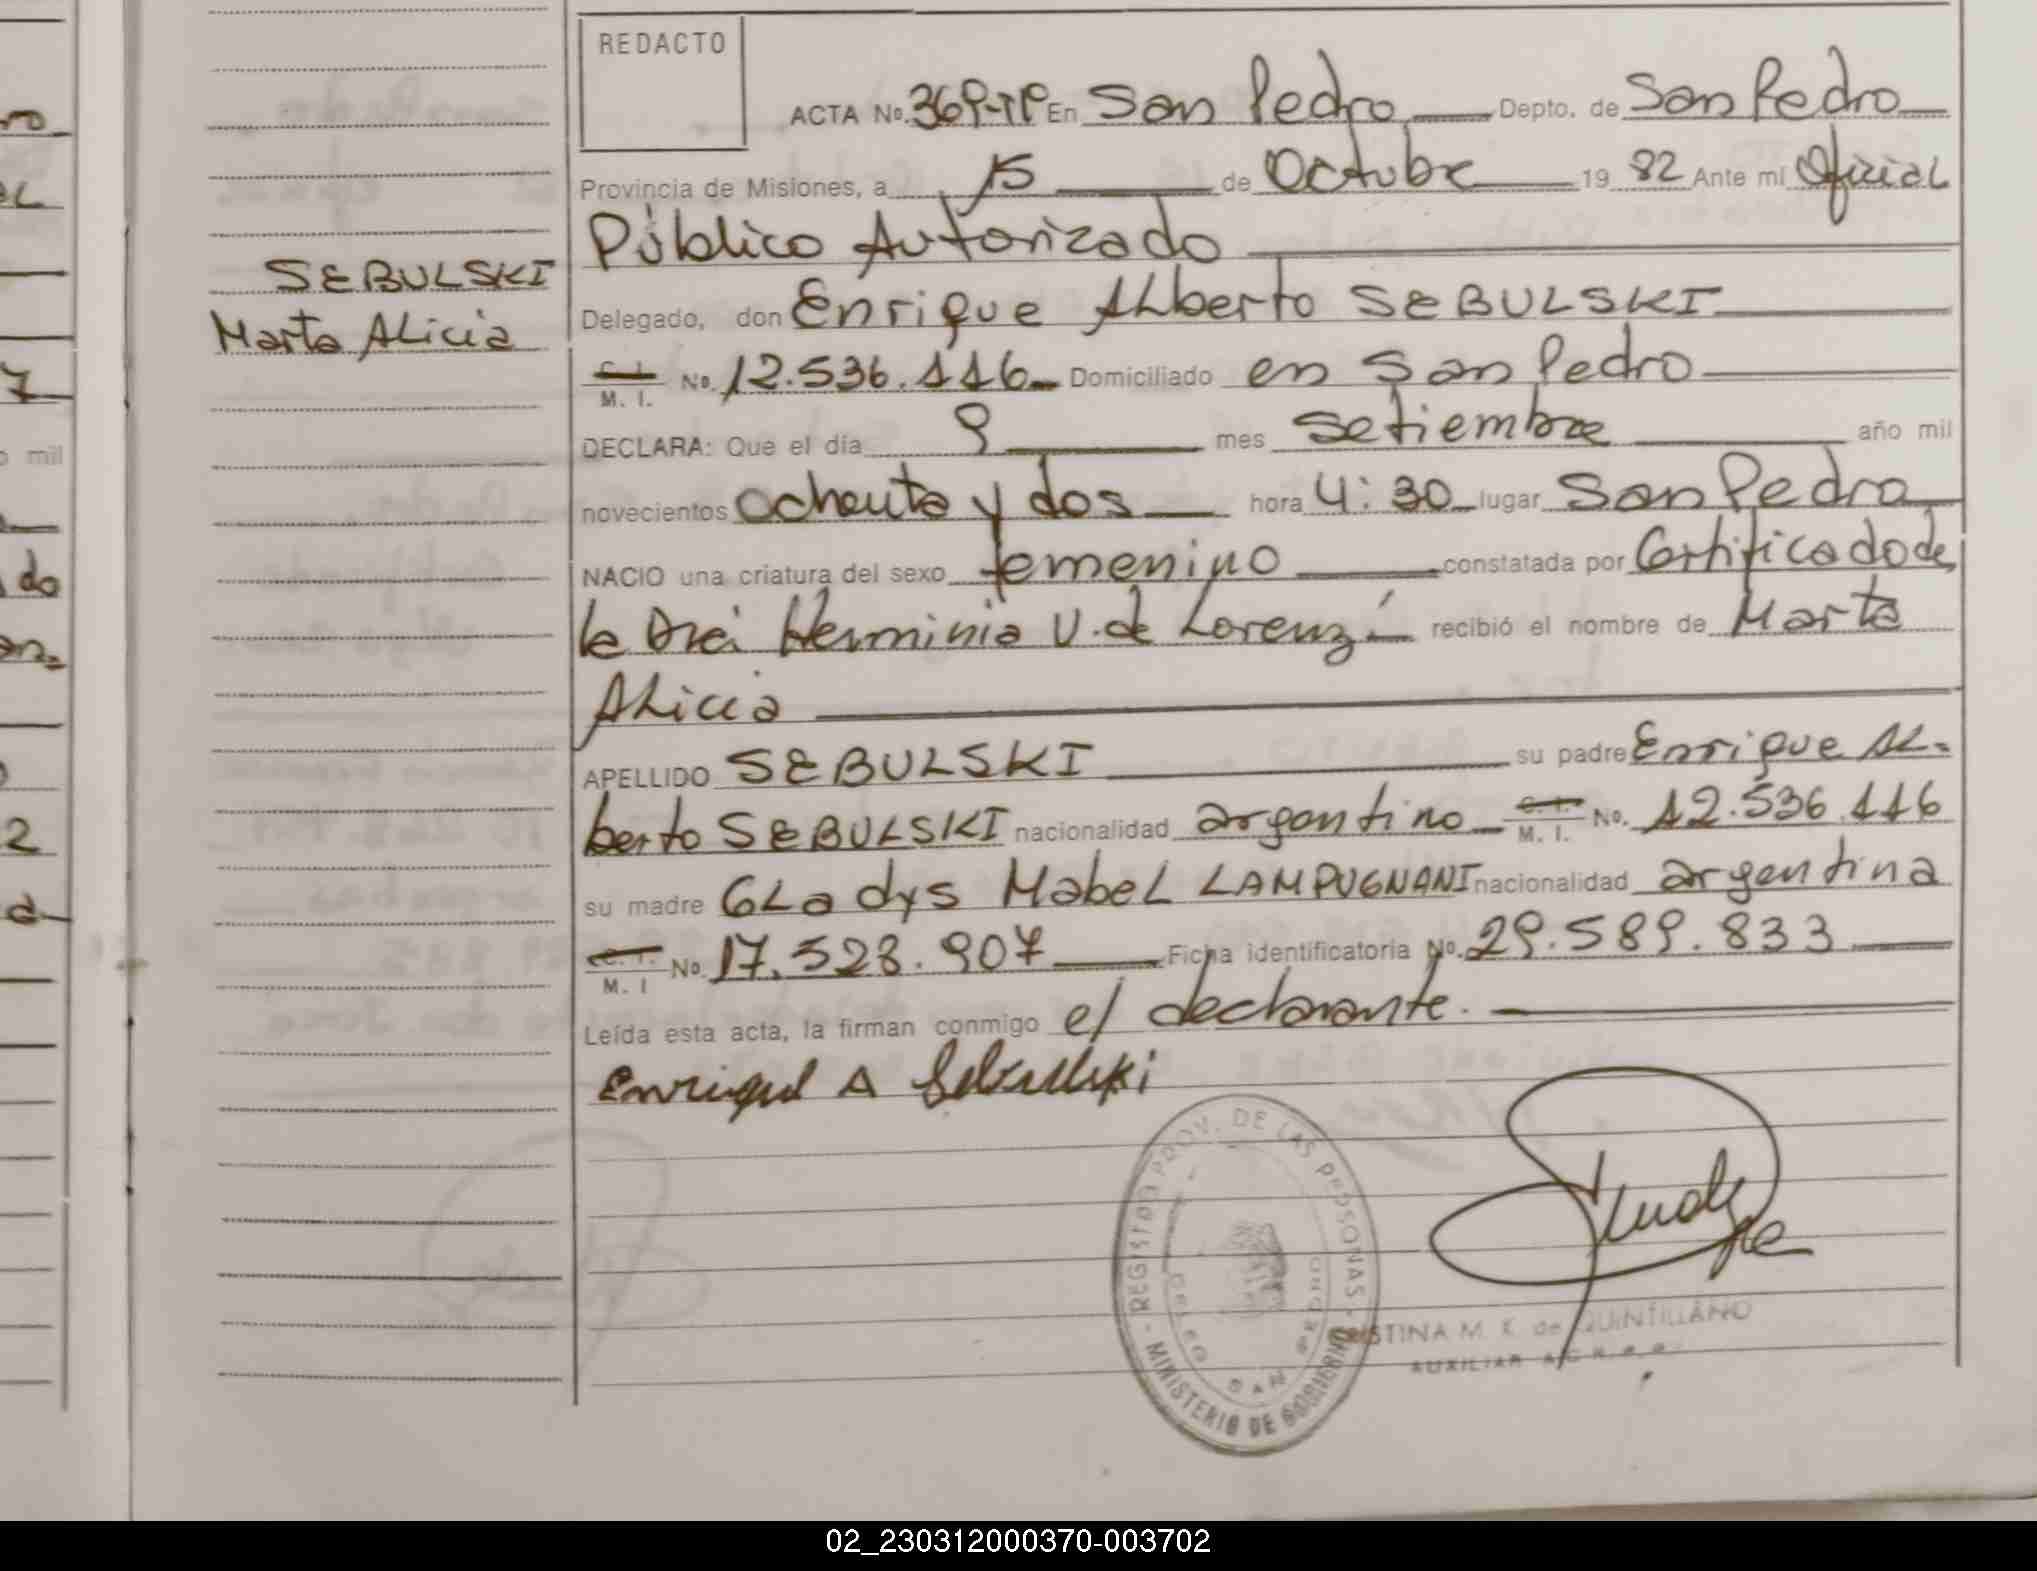 REDACTO
ACTA No. 369-Tº En San Pedro Depto. de San Pedro
Provincia de Misiones, a 15 de Octubre 19 82 Ante mí Oficial
Público Autorizado
SEBULSKI
Marta Alicia
Delegado, don Enrique Alberto SEBULSKI
C. I. M. I. No. 12.536.116 Domiciliado en San Pedro
DECLARA: Que el día 9 mes Setiembre año mil
novecientos ochenta y dos hora 4:30 lugar San Pedro
NACIO una criatura del sexo femenino constatada por Certificado de
la Dra. Herminia V. de Lorenz recibió el nombre de Marta
Alicia
APELLIDO SEBULSKI su padre Enrique Al=
berto SEBULSKI nacionalidad argentino C. I. M. I. No. 12.536.116
su madre GLadys MabeL LAMPUGNANI nacionalidad argentina
C. I. M. I No. 17.528.907 Ficha identificatoria No. 29.589.833
Leída esta acta, la firman conmigo el declarante.
Enrique A Sebulski
REGISTRO PROV. DE LAS PERSONAS - MINISTERIO DE GOBIERNO
M. K. de QUINTILLANO
AUXILIAR
02_230312000370-003702